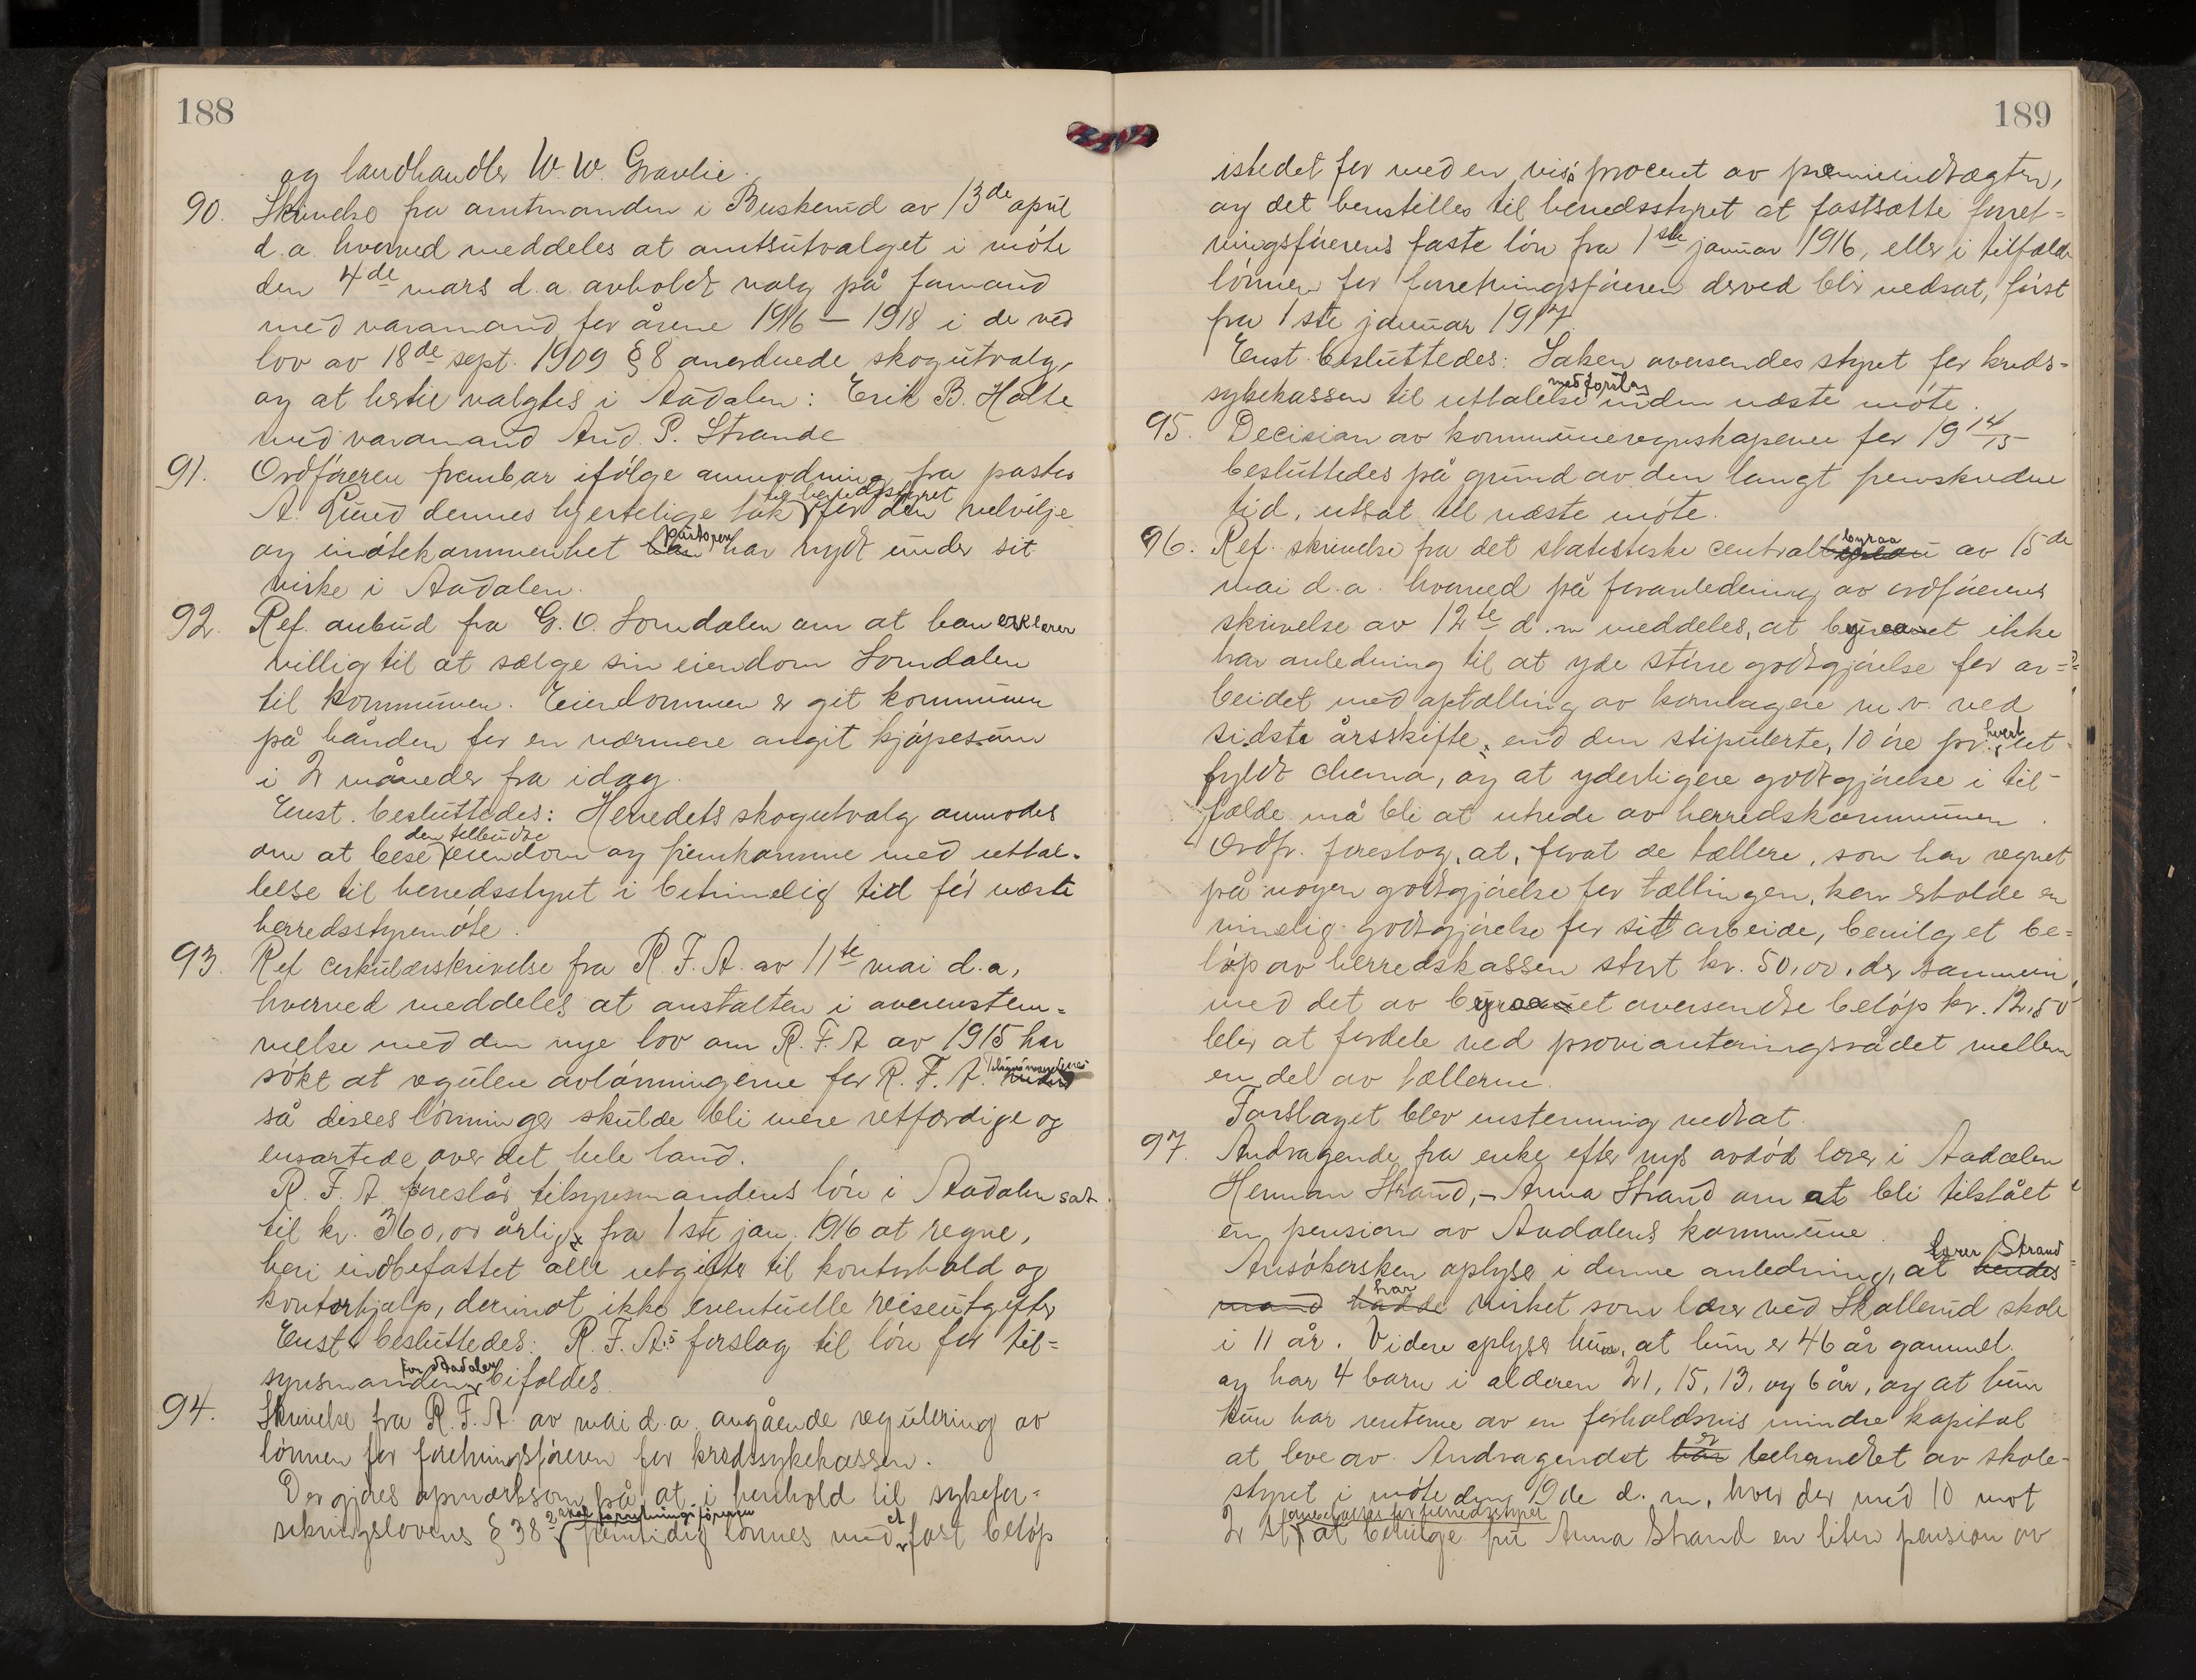 188
og landhandler W. W. Gravlie.
90. Skrivelse fra amtmanden i Buskerud av 13de april
d. a. hvorved meddeles at amtsutvalget i möte
den 4de mars d. a. avholdt valg på formand
med varamand for årene 1916 – 1918 i de ved
lov av 18de sept. 1909 § 8 anordnede skogutvalg,
og at hertil valgtes i Aadalen: Erik B. Halte
med varamand And. P. Strande
91. Ordföreren frembar ifölge anmodning fra pastor
A. Ruud dennes hjertelige tak til herredsstyret for den velvilje
og imötekommenhet pastoren har nydt under sit
virke i Aadalen.
92. Ref. anbud fra G. O. Somdalen om at han erklærer
villig til at sælge sin eiendom Somdalen
til kommunen. Eiendommen er git kommunen
på hånden for en nærmere angit kjöpesum
i 2 måneder fra idag.
Enst. besluttedes: Herredets skogutvalg anmodes
om at bese den tilbudte eiendom og fremkomme med uttal-
lelse til herredsstyret i betimelig tid för næste
herredsstyremöte.
93. Ref. cirkulærskrivelse fra R. F. A. av 11te mai d. a,
hvorved meddeles at anstalten i overenstem-
melse med den nye lov om R. F. A av 1915 har
sökt at regulere avlönningerne for R. F. A. tilsynsmændene
så disses lönninger skulde bli mere retfærdige og
ensartede over det hele land.
R. F. A. foreslår tilsynsmandens lön i Aadalen sat
til kr. 360,00 årlig fra 1ste jan. 1916 at regne,
heri indbefattet alle utgifter til kontorhold og
kontorhjælp, derimot ikke eventuelle reiseutgifter
Enst. besluttedes: R. F. A.s forslag til lön for til-
synsmanden for Aadalen bifaldes.
94. Skrivelse fra R. F. A. av mai d. a. angående regulering av
lönnen for forretningsföreren for kredssykekassen.
Der gjöres opmærksom på at i henhold til sykefor-
sikringslovens § 38 2 skal forretningsföreren fremtidig lönnes med et fast belöp
189
istedet for med en viss procent av præmieindtægten,
og det henstilles til herredsstyret at fastsætte forret-
ningsförerens faste lön fra 1ste januar 1916, eller i tilfælde
lönnen for forretningsföreren derved blir nedsat, först
fra 1ste januar 1917.
Enst. besluttedes: Saken oversendes styret for kreds-
sykekassen til uttalelse med forslag inden næste möte.
95. Decision av kommuneregnskapene for 1914/15
besluttedes på grund av den langt fremskredne
tid, utsat til næste möte.
96. Ref. skrivelse fra det statistiske centralbyraa av 15de
mai d. a. hvorved på foranledning av ordförerens
skrivelse av 12te d. m meddeles, at byraaet ikke
har anledning til at yde större godtgjörelse for ar-
beidet med optælling av kornlagere m. v. ved
sidste årsskifte, end den stipulerte, 10 öre pr. hvert ut-
fyldt chema, og at yderligere godtgjörelse i til-
fælde må bli at utrede av herredskommunen.
Ordfr. foreslog, at, forat de tællere, som har regnet
på nogen godtgjörelse for tællingen, kan erholde en
rimelig godtgjörelse for sitt arbeide, bevilget be-
löp av herredskassen stort kr. 50,00, der sammen
med det av byraaet oversendte belöp kr. 12,50
blir at fordele ved provianteringsrådet mellem
en del av tællerne.
Forslaget blev enstemmig vedtat.
97. Andragende fra enke efter nys avdöd lærer i Aadalen
Herman Strand, – Anna Strand om at bli tilstått
en pension av Aadalens kommune.
Ansökersken oplyser i denne anledning, at lærer Strand hendes
mand hadde har virket som lærer ved Skollerud skole
i 11 år. Videre oplyser hun, at hun er 46 år gammel.
og har 4 barn i alderen 21, 15, 13, og 6 år, og at hun
kun har renterne av en forholdsvis mindre kapital
at leve av. Andragendet har er behandlet av skole-
styret i möte den 19de d. m, hvor der med 10 mot
2 st. anbefales for herredsstyret at bevilge fru Anna Strand en liten pension av